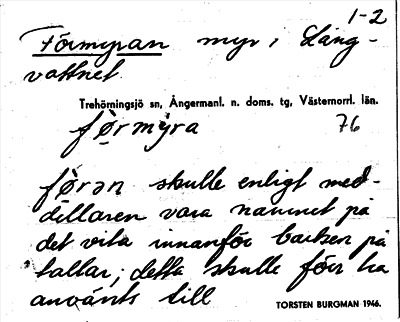 1-2
Förmyran myr i Lång-
vattnet
Trehörningsjö sn, Ångermanl. n. doms. tg, Västernorrl. län.
fö̀rmỳra 76
fö̀rən skulle enligt med-
dellaren vara namnet på
det vita innanför barken på
tallar; detta skulle förr ha
använts till
TORSTEN BURGMAN 1946.